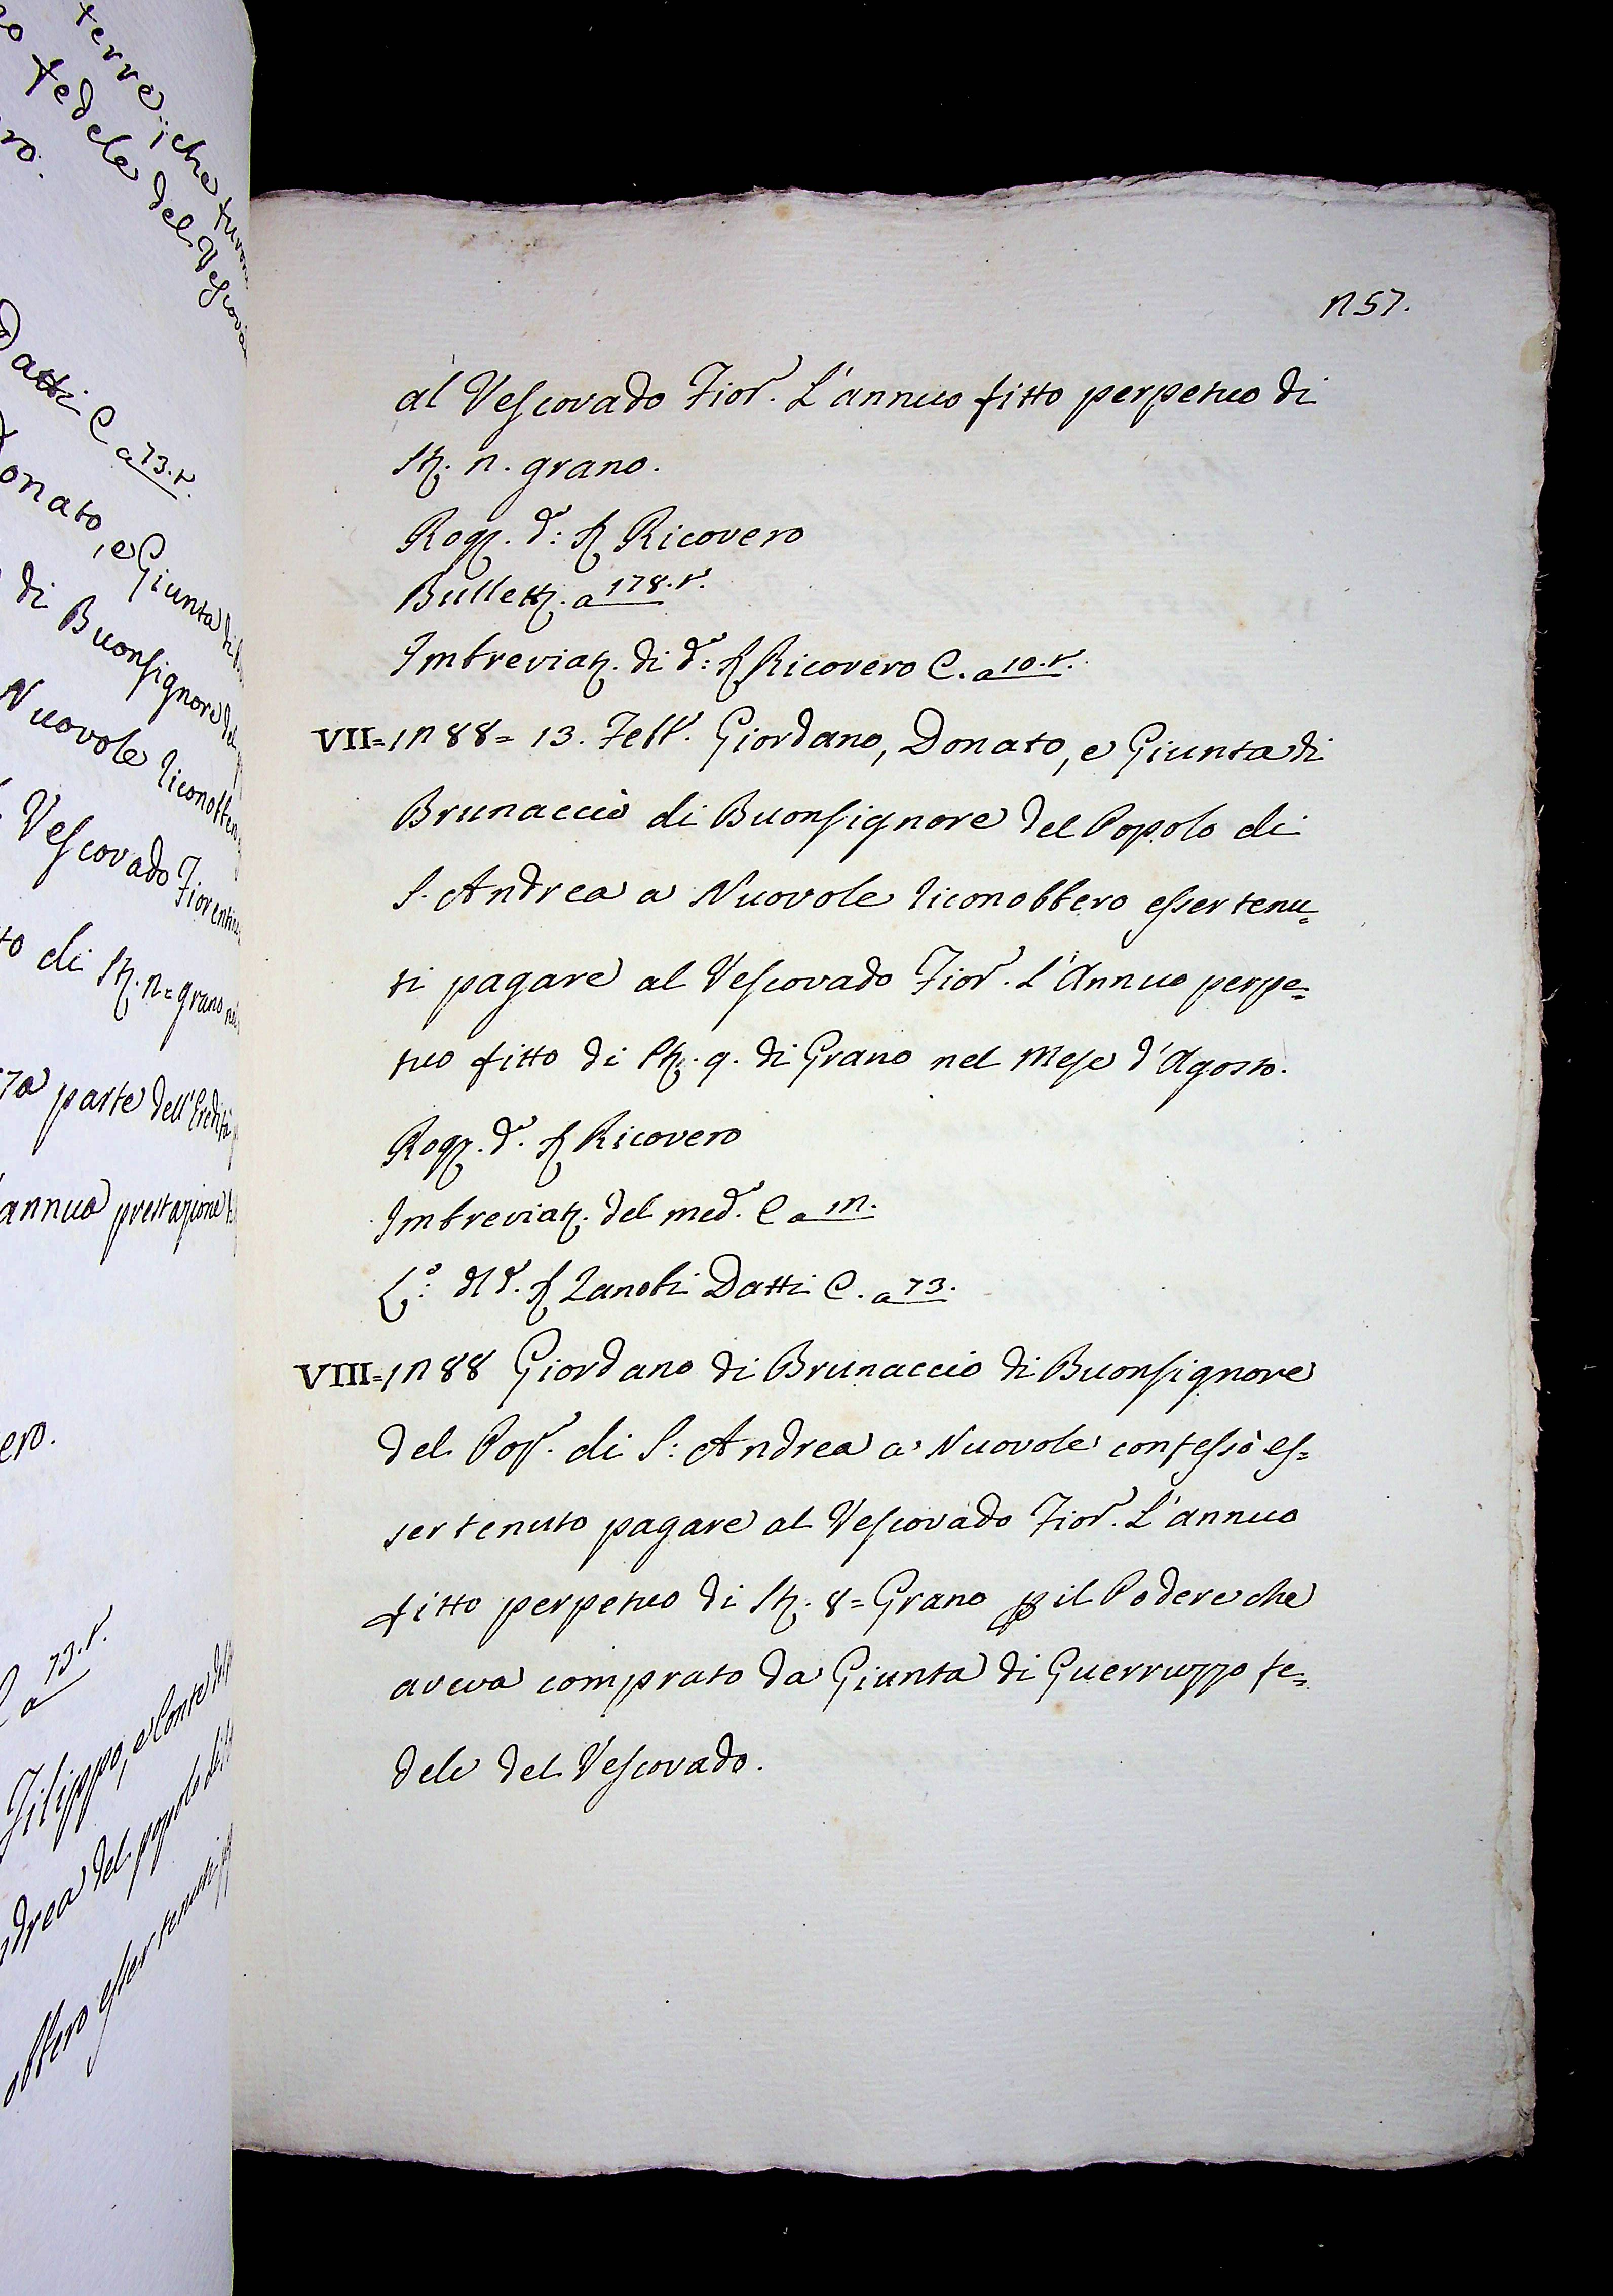 terre, che furon
fedele del Vescova
ro.
Datti C a 73. t.
Donato, e Giunta di
di Buonsignore del
Nuovole riconobber
Vescovado Fiorentin
to di St. 2= grano
parte dell'Eredità
annua prestazione
ero.
a 73. t.
Filippo, e Conte
ndrea del popolo di
obbero esser tenuti
257.
al Vescovado Fior. L'annuo fitto perpetuo di
St. 2. grano.
Rog. d: S. Ricovero
Bullett. a 178. t.
Imbreviat. di d: S. Ricovero C. a 10. t.
VII=1288= 13. Febb. Giordano, Donato, e Giunta di
Brunaccio di Buonsignore del Popolo di
S. Andrea a Nuovole riconobbero esser tenu=
ti pagare al Vescovado Fior. L'Annuo perpe=
tuo fitto di St. 9. di Grano nel Mese d'Agosto.
Rog. d. S. Ricovero
Imbreviat. del med. C a 12.
L.o di d. S. Zanobi Datti C. a 73.
VIII=1288 Giordano di Brunaccio di Buonsignore
del Pop. di S: Andrea a Nuovole confessò es=
ser tenuto pagare al Vescovado Fior. L'annuo
fitto perpetuo di St. 8= Grano p il Podere che
aveva comprato da Giunta di Guerruzzo fe=
dele del Vescovado.